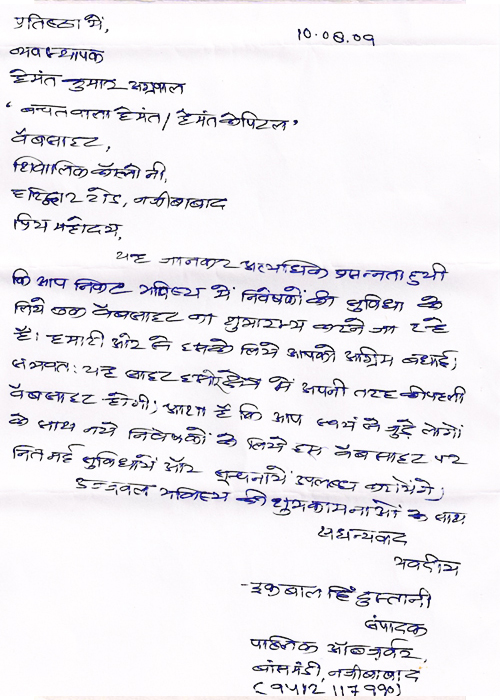 प्रतिष्ठा में,
10.08.09
व्यवस्थापक
हेमंत कुमार अग्रवाल
'बचतवाला हेमंत / हेमंत कैपिटल'
वेबसाइट,
शिवालिक कॉलोनी,
हरिद्वार रोड, नजीबाबाद
प्रिय महोदय,
यह जानकर अत्यधिक प्रसन्नता हुयी
कि आप निकट भविष्य में निवेषकों की सुविधा के
लिये एक वेबसाइट का शुभारम्भ करने जा रहे
है। हमारी ओर से इसके लिये आपको अग्रिम बधाई;
संभवत: यह साइट हमारे क्षेत्र में अपनी तरह की पहली
वेबसाइट होगी; आशा है कि आप स्वयं से जुड़े लोगों
के साथ नये निवेषकों के लिये इस वेबसाइट पर
नित नई सुविधायें और सूचनायें उपलब्ध करायेंगे;
उज्जवल भविष्य की शुभकामनाओं के साथ
सधन्यवाद
भवदीय
-इकबाल हिंदुस्तानी
संपादक
पब्लिक ऑब्जर्वर,
बांसमंडी, नजीबाबाद
(9412117990)